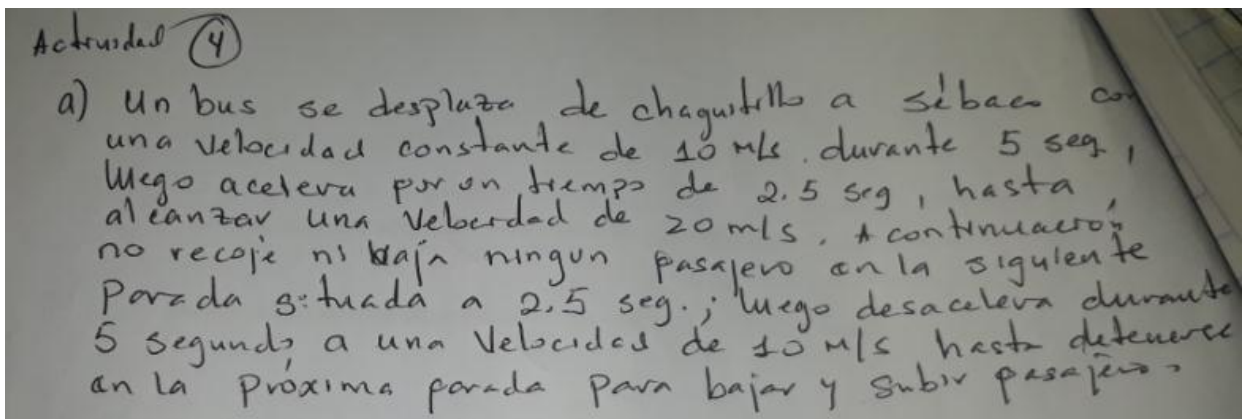 Actividad 4
a) Un bus se desplaza de chaguitillo a sébaco con
una velocidad constante de 10 m/s. durante 5 seg,
luego acelera por un tiempo de 2.5 seg, hasta
alcanzar una velocidad de 20 m/s. A continuación
no recoje ni baja ningun pasajero en la siguiente
parada situada a 2.5 seg.; luego desacelera durante
5 segundo a una velocidad de 10 m/s hasta detenerce
en la próxima parada para bajar y subir pasajeros.